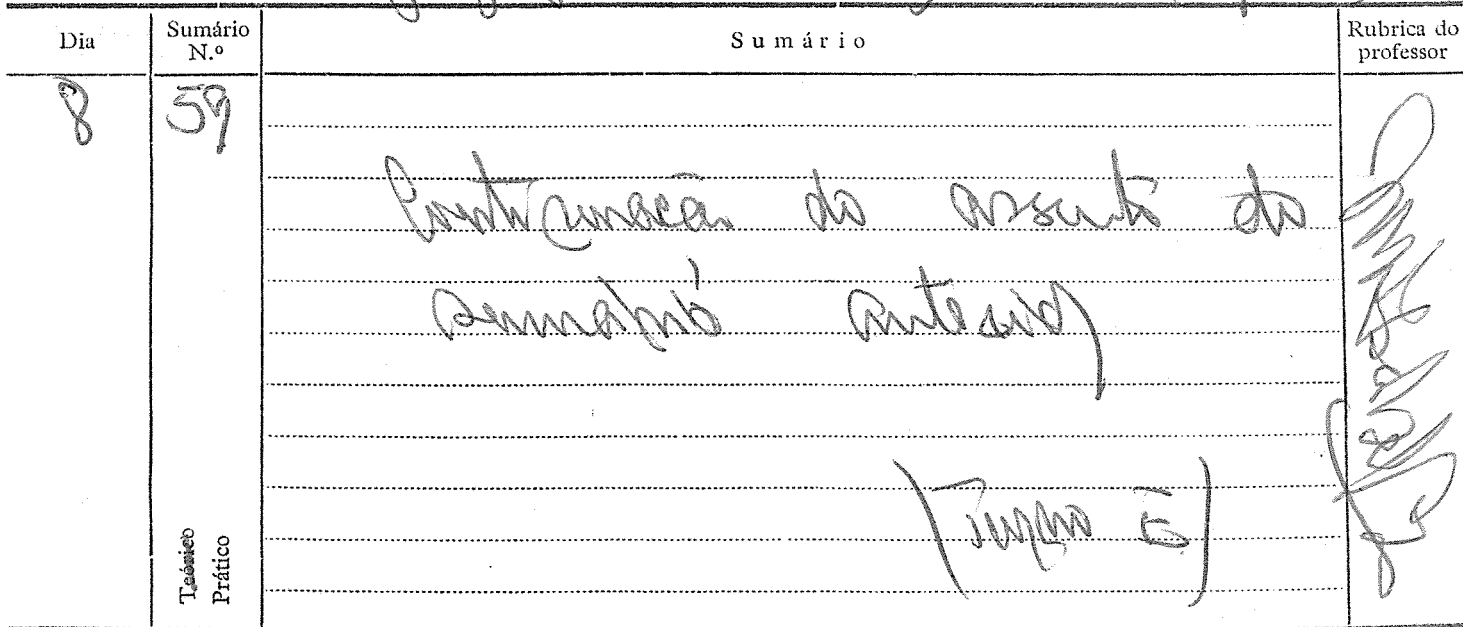 Dia Sumário N.º Sumário Rubrica do professor
8 59
Continuação do assunto do
sumário anterior
(Turno E)
Teórico
Prático